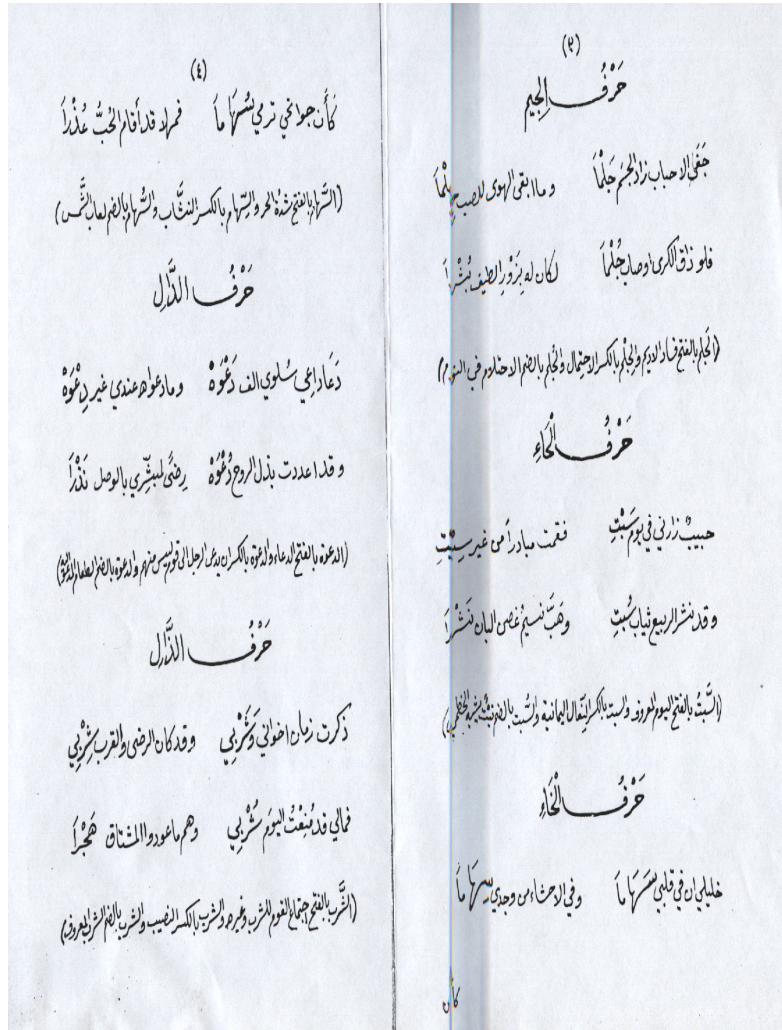 (٩)
حَرْفُ الجِيم
جَفَى الاحباب زاد الجسم حَلْمَا وما ابقى الهوى للصب حِلْمَا
فلو ذاق الكرى او صاب حُلْمَا لكان له بِزَوْرِ الطيف بُشْرَا
(الحَلم بالفتح فساد الاديم والحِلْم بالكسر الاحتمال والحُلم بالضم الاحتلام في النوم)
حَرْفُ الْحَاءِ
حبيبٌ زارني في يوم سَبْتِ فقمت مبادراً من غير سِبْتِ
وقد نشر الربيع ثياب سُبتِ وهَبَّ نسيمُ غصن البان نَشْرَا
(السَّبتُ بالفتح اليوم المعروف والسبت بالكسر النِّعال اليمانية والسُّبت بالضم نبتٌ يشبه الخطمي)
حَرْفُ الْخَاءِ
خليلي ان في قلبي سَهَامَا وفي الاحشاء من وجدي سِهَامَا
كأن
(٤)
كَأَن جوانحي ترمي سُهَامَا فمهلا قد أقام الحُبُّ عُذْرَا
(السَّهام بالفتح شدة الحر والسِّهام بالكسر النشَّاب والسُّهام بالضم لعاب الشَّمس)
حَرْفُ الدَّالِ
دَعَا داعِي سُلوي الف دَعْوَهْ وما دعواه عندي غير دِعْوَهْ
وقد اعددت بذل الروح دُعْوَهْ رِضىً لمبشِّري بالوصل نَذْرَا
(الدعوة بالفتح الدعاء والدعوة بالكسر ان يدعى الرجل الى قوم ليس منهم والدعوة بالضم الطعام المدعو)
حَرْفُ الذَّالِ
ذكرت زمان اخواني وَشَرْبِي وقد كان الرضى والقرب شِرْبِي
فمالي قد مُنِعْتُ اليوم شُرْبِي وهم ما عودوا المشتاق هَجْرَا
(الشَّرب بالفتح اجتماع القوم للشرب وغيره والشرب بالكسر النصيب والشرب بالضم الشرب المعروف)